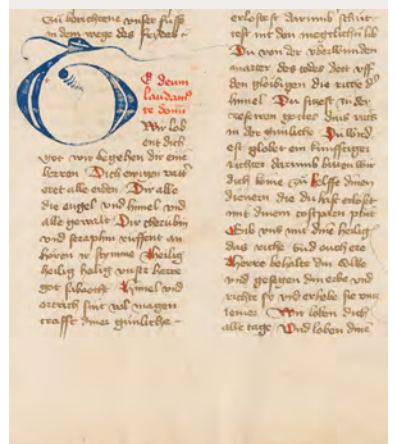 Zü berichtene vnser füsse
in dem wege des frydes
E deum
laudam
te domi
Wir lob
ent dich
got wir begehen dir eine
herren Dich ewigen vatt
eret alle erden Dir alle
die engel vnd himel vnd
alle gewalt Dir cherubin
vnd seraphin ruffent an
hören ir stymme Heilig
heilig halig vnser herre
got sabaoth Hymel vnd
ertrich sint vol magen
crafft diner günliche
erlostest darumb
test nit den megtlichen lib
Du von der vberwunden
marter des todes dett vff
den gloibigen die riche d
himel Du sitzest zu der
gottes dins vatt
in der günliche Du wird
est glober ein künftiger
richter darumb bitten wir
dich kome zü helffe dinen
dienern die du hast erlost
mit dinem costparn plut
Gib vns mit dine heilig
das riche vnd ouch ere
Herre behalte din folke
vnd gesegen din erbe vnd
richte sy vnd erhebe sie vntz
iemer Wir loben dich
alle tage Vnd loben dine